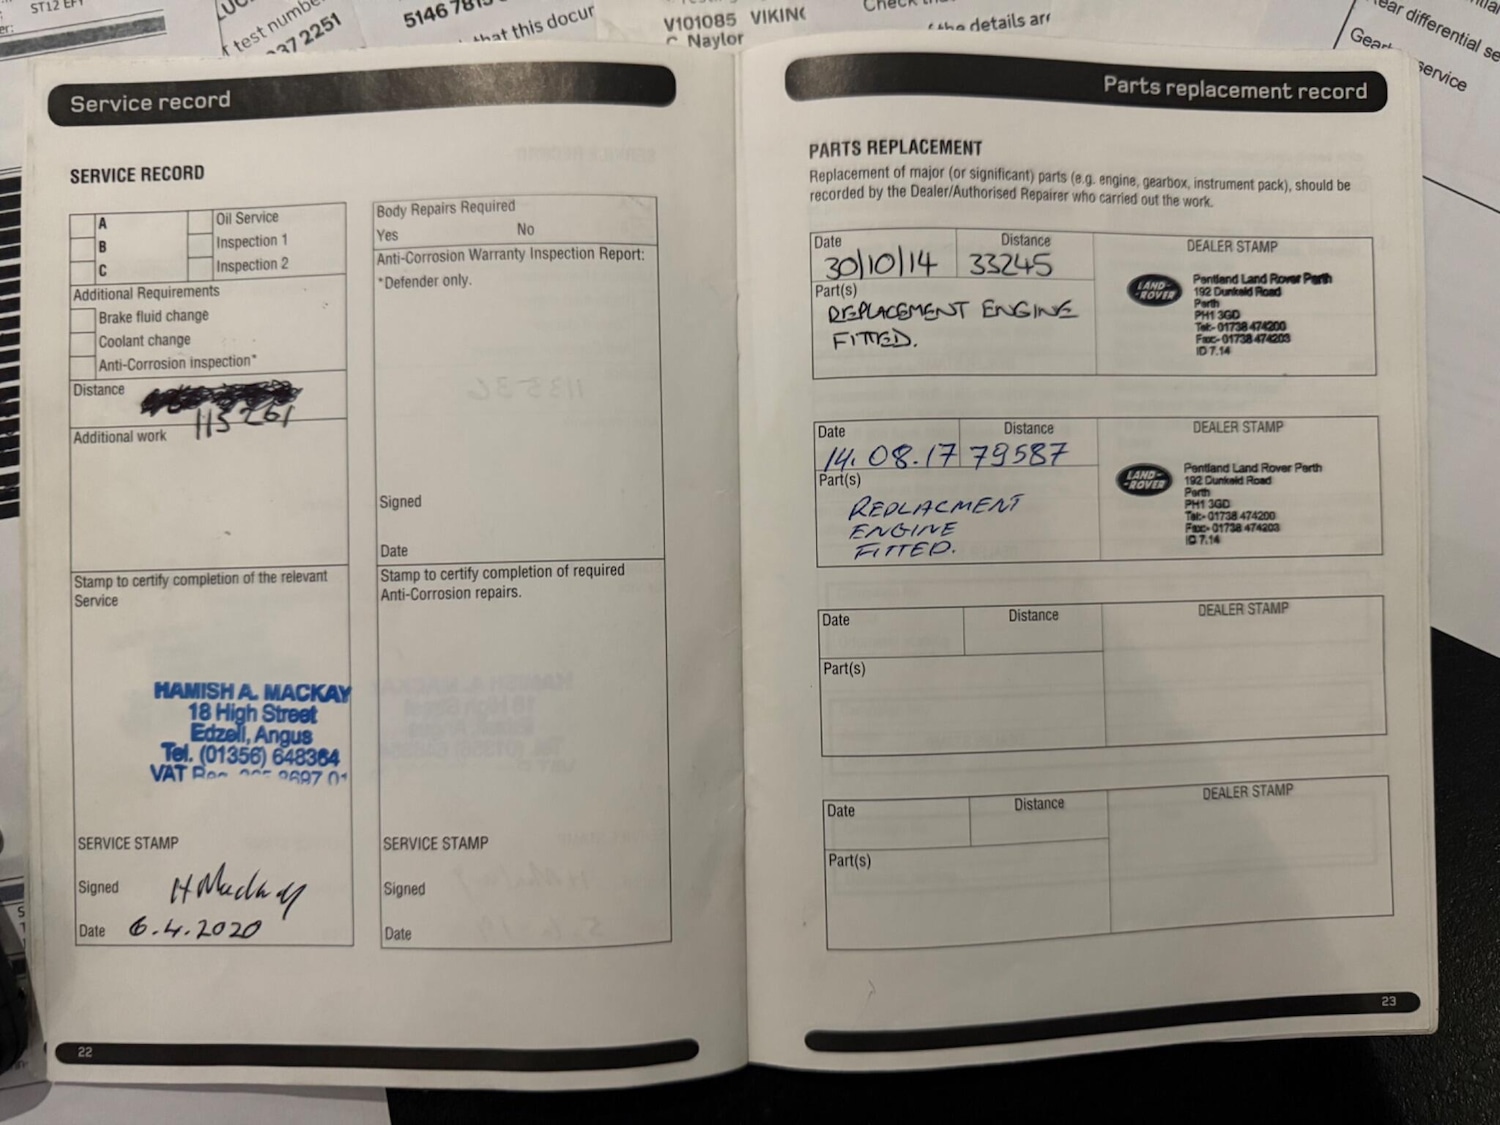 ST12
test number
237 2251
5146
that this docur
V101085 VIKING
C. Naylor
the details are
rear differential se
service
Service record
SERVICE RECORD
A
B
C
Oil Service
Inspection 1
Inspection 2
Additional Requirements
Brake fluid change
Coolant change
Anti-Corrosion inspection*
Distance
115261
Additional work
Stamp to certify completion of the relevant
Service
HAMISH A. MACKAY
18 High Street
Edzell, Angus
Tel. (01356) 648364
VAT
SERVICE STAMP
Signed H Mackay
Date 6.4.2020
22
Body Repairs Required
Yes No
Anti-Corrosion Warranty Inspection Report:
*Defender only.
Signed
Date
Stamp to certify completion of required
Anti-Corrosion repairs.
SERVICE STAMP
Signed
Date
Parts replacement record
PARTS REPLACEMENT
Replacement of major (or significant) parts (e.g. engine, gearbox, instrument pack), should be
recorded by the Dealer/Authorised Repairer who carried out the work.
Date Distance DEALER STAMP
30/10/14 33245
Part(s)
REPLACEMENT ENGINE
FITTED.
LAND-
-ROVER
Pentland Land Rover Perth
192 Dunkeld Road
Perth
PH1 3GD
Tel:- 01738 474200
Fax:- 01738 474203
ID 7.14
Date Distance DEALER STAMP
14.08.17 79587
Part(s)
REPLACMENT
ENGINE
FITTED.
LAND-
-ROVER
Pentland Land Rover Perth
192 Dunkeld Road
Perth
PH1 3GD
Tel:- 01738 474200
Fax:- 01738 474203
ID 7.14
Date Distance DEALER STAMP
Part(s)
Date Distance DEALER STAMP
Part(s)
23